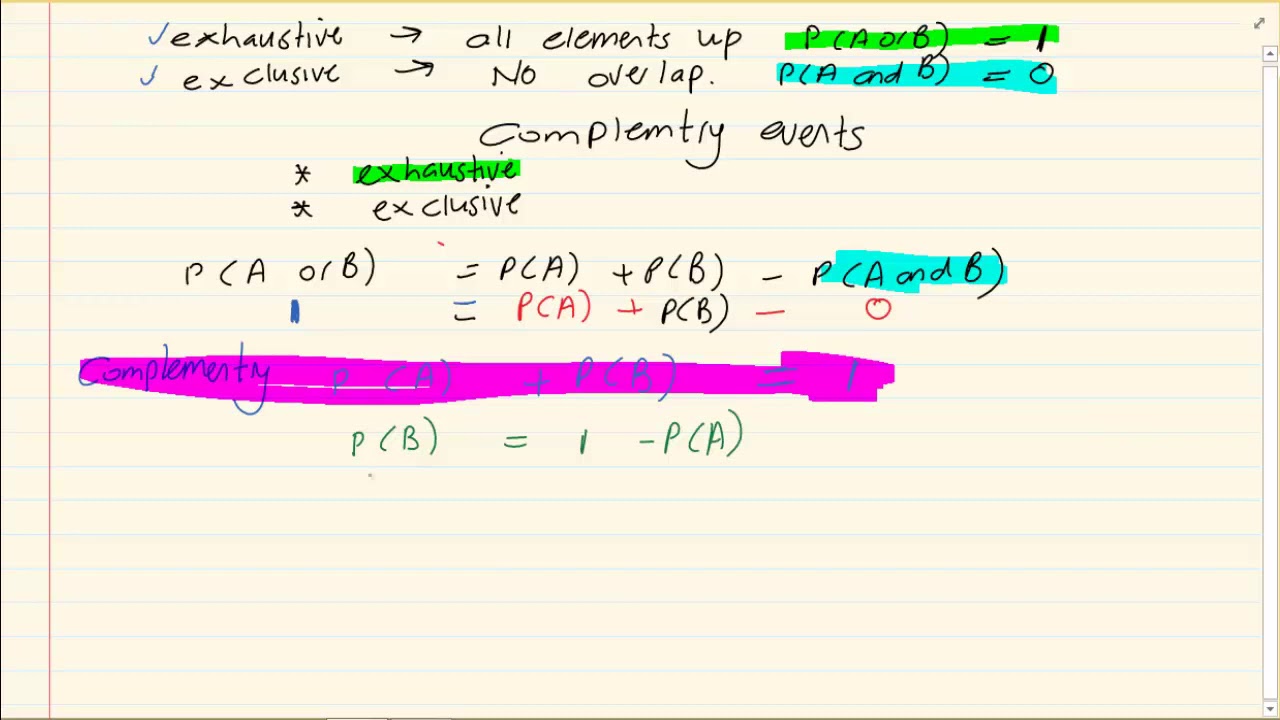 ✓ exhaustive → all elements up P(A or B) = 1
✓ exclusive → No overlap. P(A and B) = 0
Complemtry events
* exhaustive
* exclusive
P(A or B) = P(A) + P(B) - P(A and B)
1 = P(A) + P(B) - 0
Complementry P(A) + P(B) = 1
P(B) = 1 - P(A)